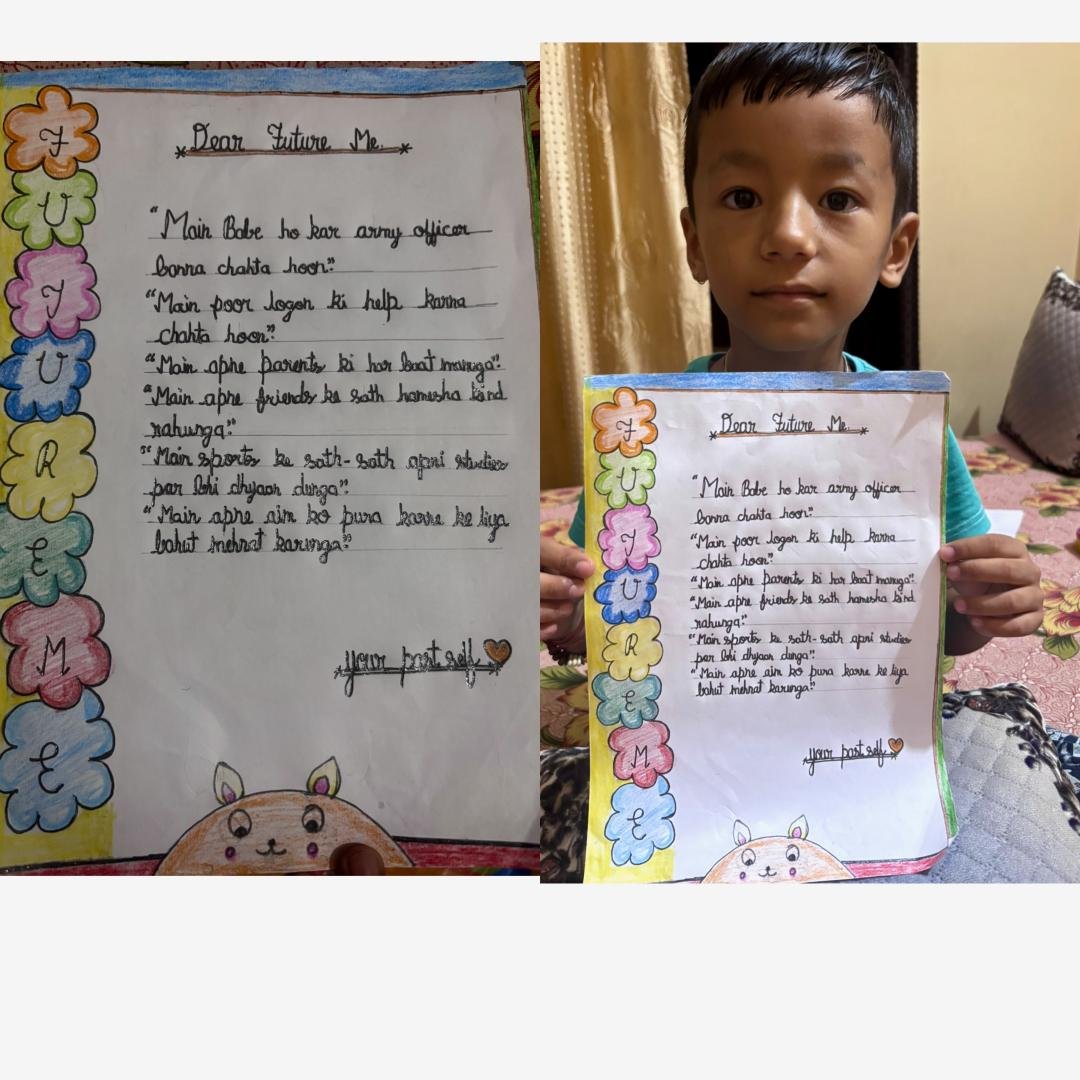 F
U
T
U
R
E
M
E
Dear Future Me.
"Main Bade ho kar army officer
banna chahta hoon".
"Main poor logon ki help karna
chahta hoon".
"Main apne parents ki har baat manuga".
"Main apne friends ke sath hamesha kind
rahunga".
"Main sports ke sath-sath apni studies
par bhi dhyaan dunga".
"Main apne aim ko pura karne ke liya
bahut mehnat karunga".
your past self
F
U
T
U
R
E
M
E
Dear Future Me.
"Main Bade ho kar army officer
banna chahta hoon".
"Main poor logon ki help karna
chahta hoon".
"Main apne parents ki har baat manuga".
"Main apne friends ke sath hamesha kind
rahunga".
"Main sports ke sath-sath apni studies
par bhi dhyaan dunga".
"Main apne aim ko pura karne ke liya
bahut mehnat karunga".
your past self